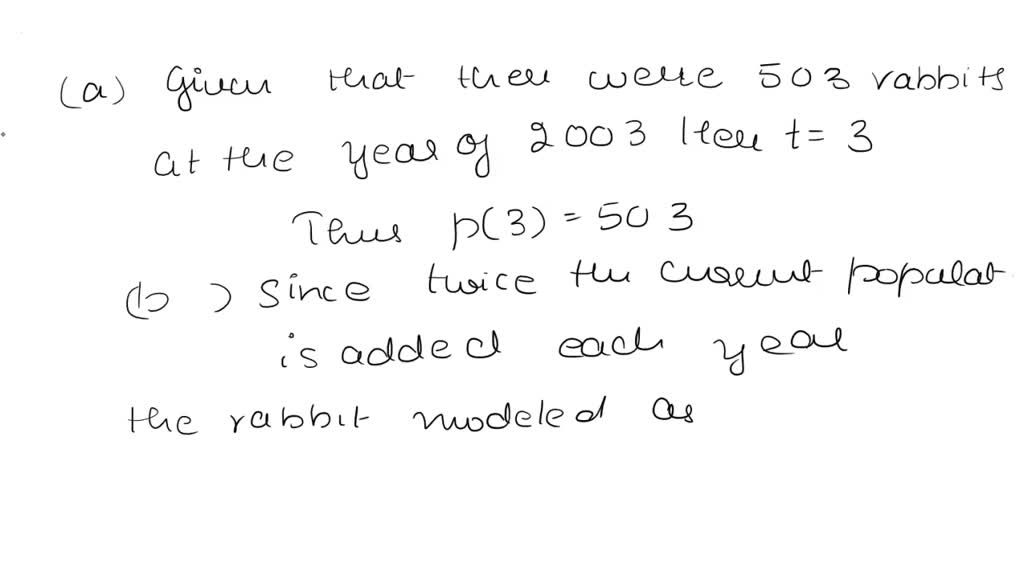 (a) Given that ther were 503 rabbits
at the year of 2003 Her t= 3
Thus p(3) = 503
(b ) Since twice the current populat
is added each year
the rabbit modeled as